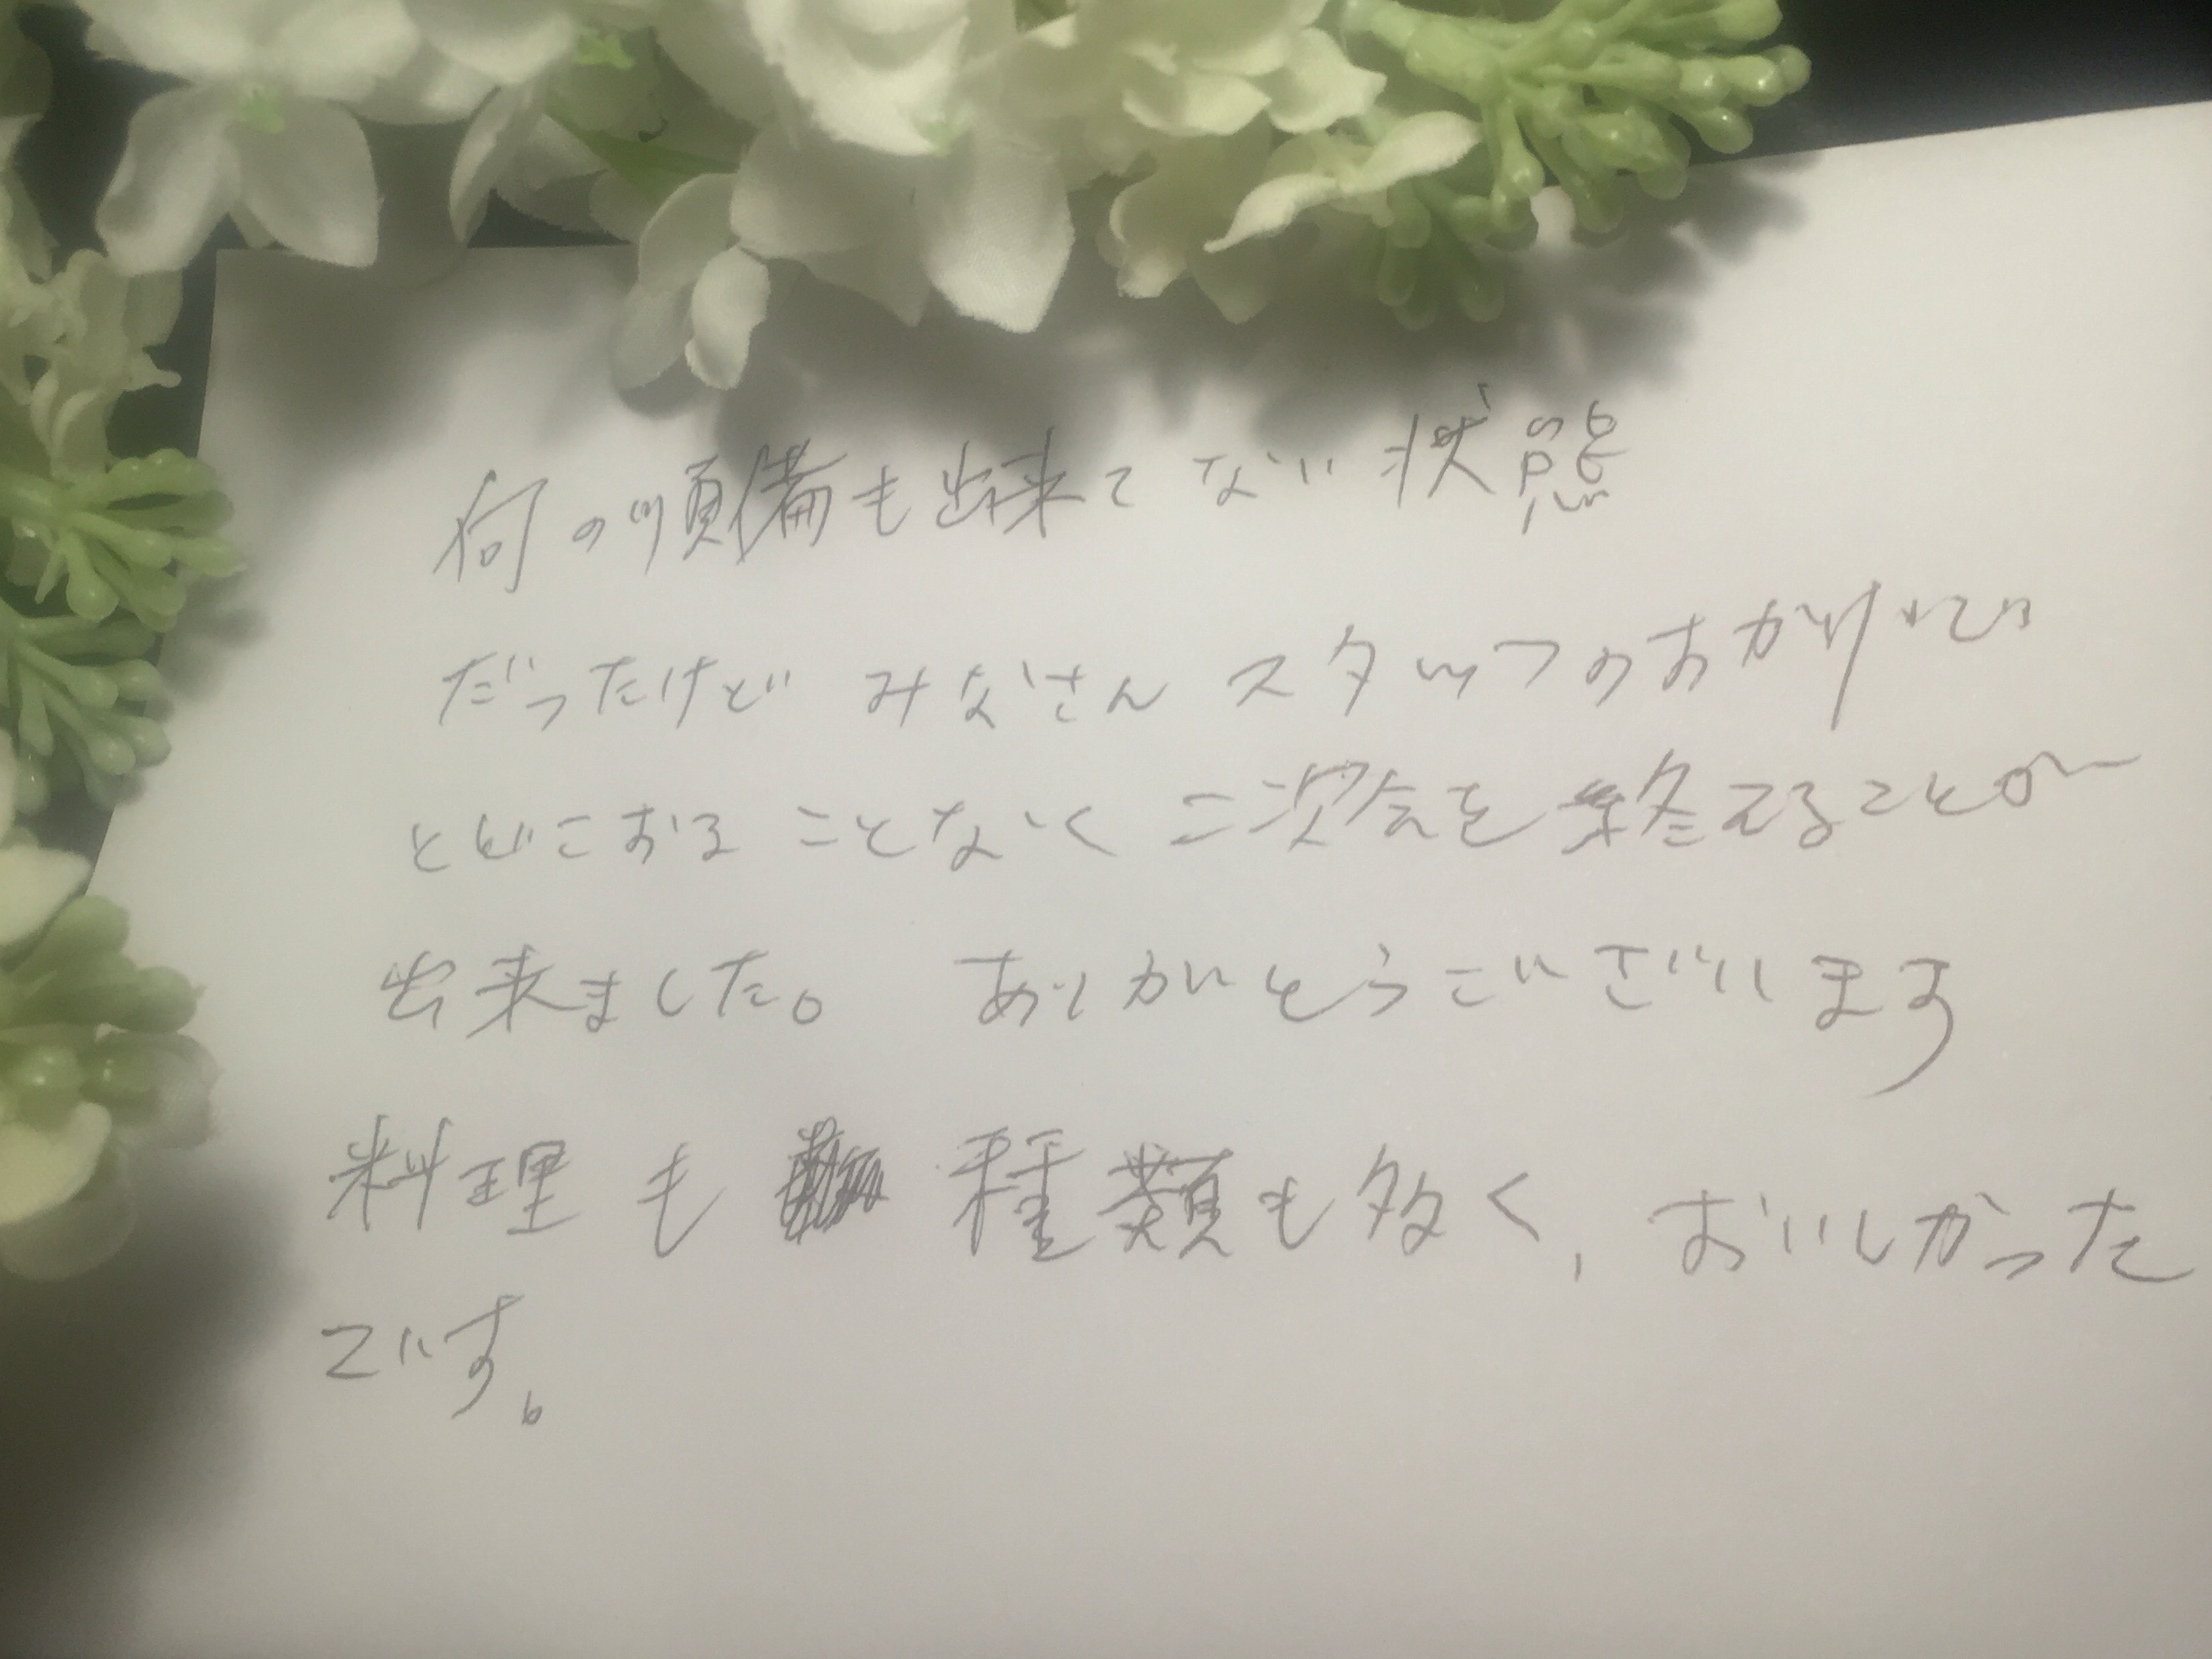 何の順備も出来てない状態
だったけど みなさん スタッフのおかげで
とどこおる ことなく 二次会を 終えることが
出来ました。 ありがとうございます
料理も 種類も多く、おいしかった
です。